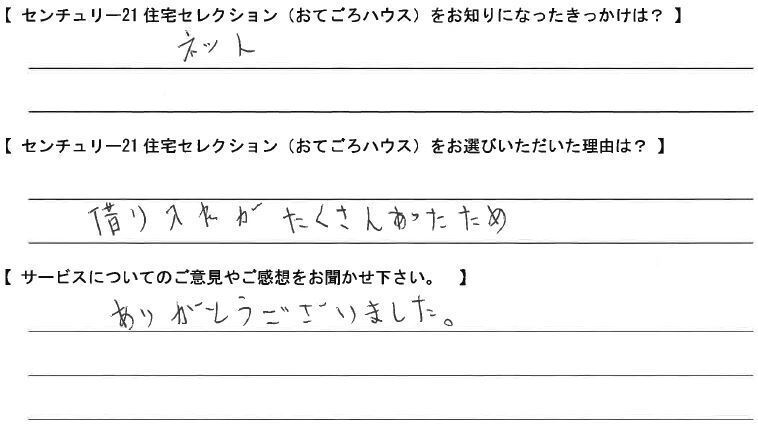 【 センチュリー21 住宅セレクション（おてごろハウス）をお知りになったきっかけは？ 】
ネット
【 センチュリー21 住宅セレクション（おてごろハウス）をお選びいただいた理由は？ 】
借り入れが たくさんあったため
【 サービスについてのご意見やご感想をお聞かせ下さい。 】
ありがとうございました。